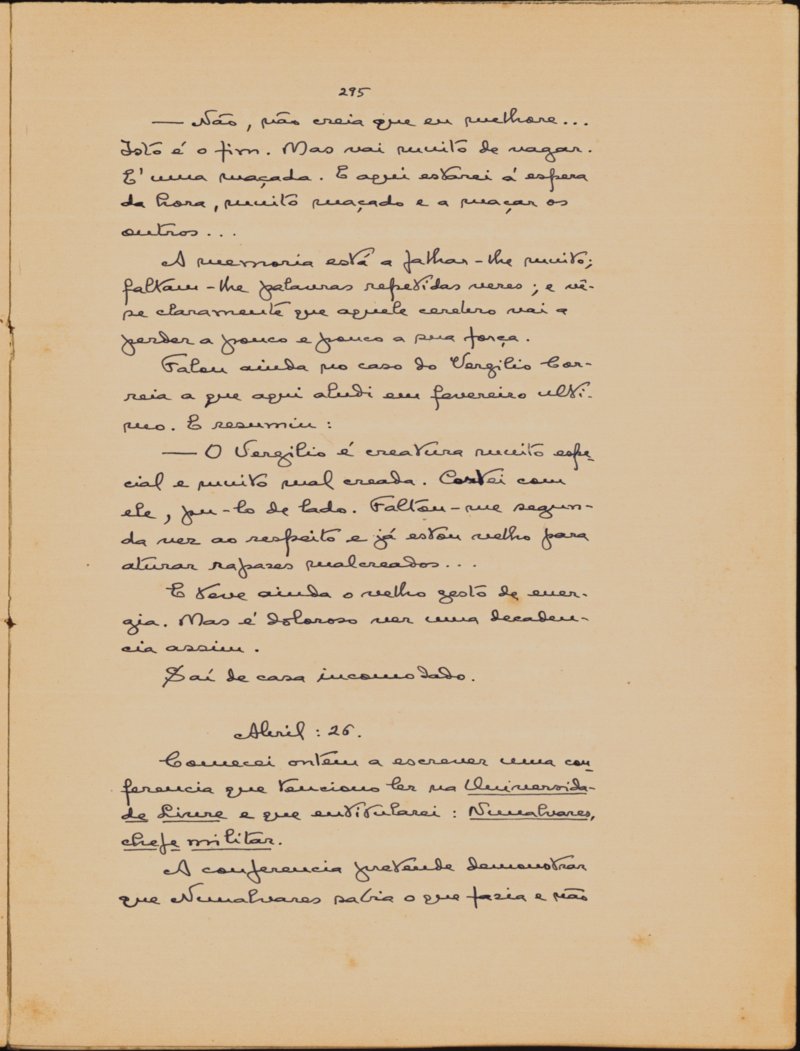 295
— Não, não creia que eu melhore...
Isto é o fim. Mas vai muito de vagar.
E' uma maçada. E aqui estarei á espera
da hora, muito maçado e a maçar os
outros...
A memoria está a falhar-lhe muito;
faltam-lhe palavras repetidas vezes; e vê-
se claramente que aquele cerebro vai a
perder a pouco e pouco a sua força.
Falou ainda no caso do Vergilio Cor-
reia a que aqui aludi em fevereiro ulti-
mo. E resumiu:
— O Vergilio é creatura muito espe-
cial e muito mal creada. Cortei com
ele, pu-lo de lado. Faltou-me segun-
da vez ao respeito e já estou velho para
aturar rapazes malcreados...
E teve ainda o velho gesto de ener-
gia. Mas é doloroso ver uma decaden-
cia assim.
Saí de casa incomodado.
Abril: 26.
Comecei ontem a escrever uma con-
ferencia que tenciono ler na Universida-
de Livre e que entitularei: Nunalvares,
chefe militar.
A conferencia pretende demonstrar
que Nunalvares sabia o que fazia e não